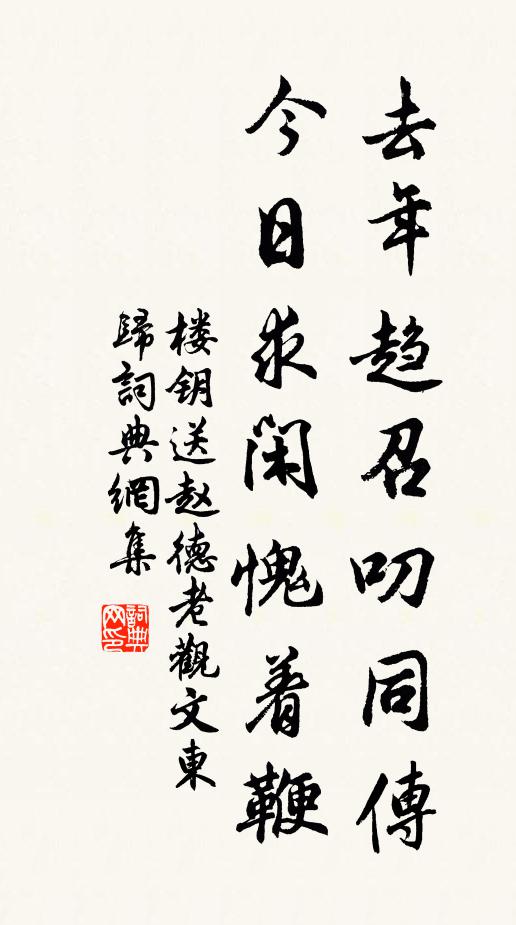 去年趋召叨同傳
今日求闲愧着鞭
楼钥送赵德老觀文東
歸詞典網集
詞典网印